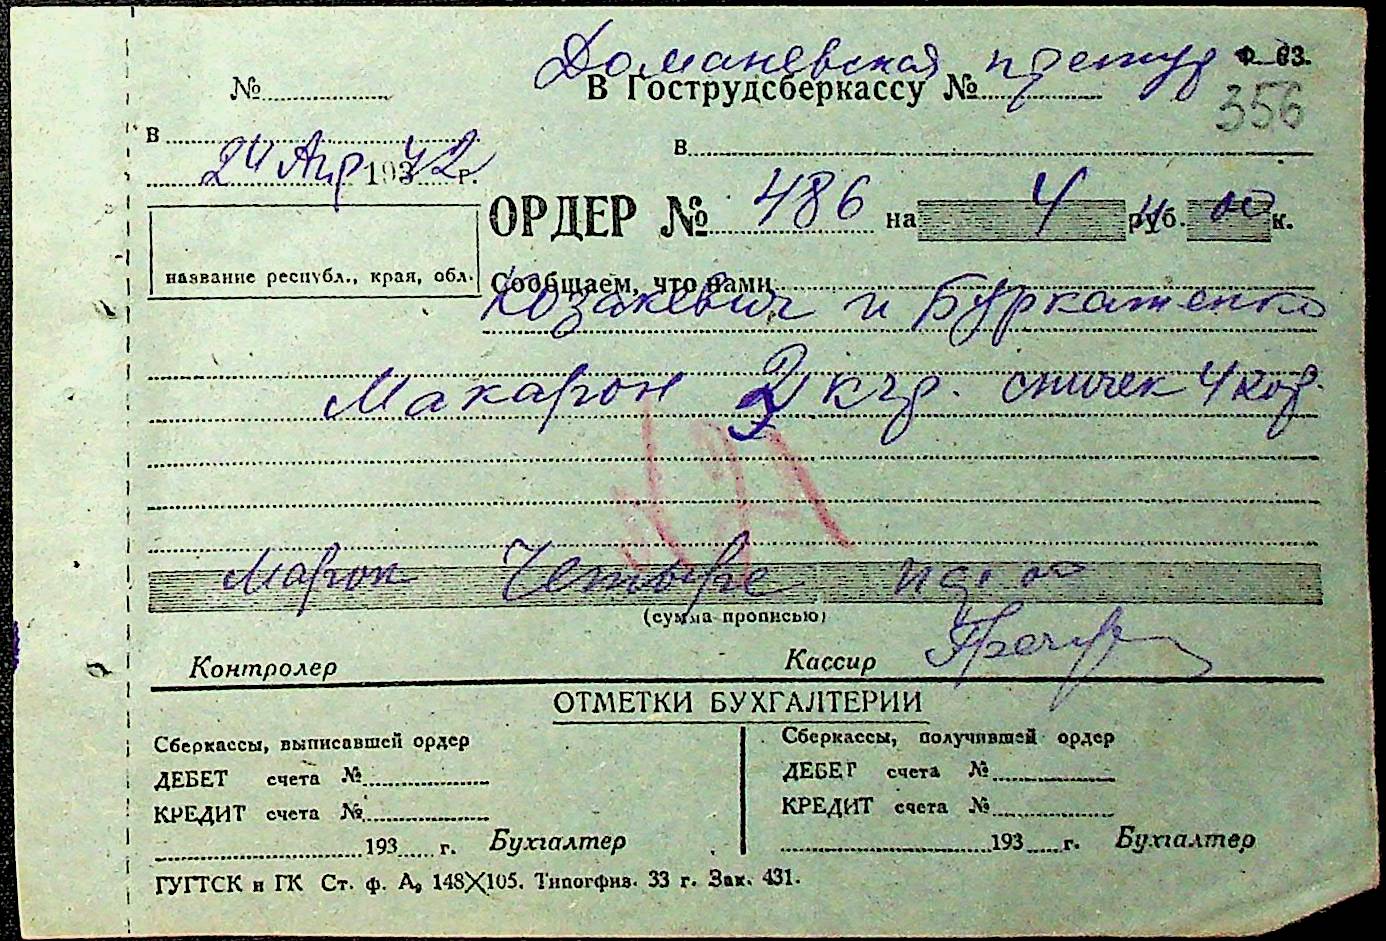 Доманевская претур Ф. 63.
№ В Гострудсберкассу № 356
В В
24 Апр 1942 г.
ОРДЕР № 486 на 4 руб. 00 к.
название республ., края, обл. Сообщаем, что нами
Козакевич и Буркатенко
Макарон 2 кгр. спичек 4 кор.
Марок Четыре пф. 00
(сумма прописью)
Контролер Кассир
ОТМЕТКИ БУХГАЛТЕРИИ
Сберкассы, выписавшей ордер Сберкассы, получившей ордер
ДЕБЕТ счета № ДЕБЕТ счета №
КРЕДИТ счета № КРЕДИТ счета №
193 г. Бухгалтер 193 г. Бухгалтер
ГУГТСК и ГК Ст. ф. А, 148X105. Типогфиз. 33 г. Зак. 431.